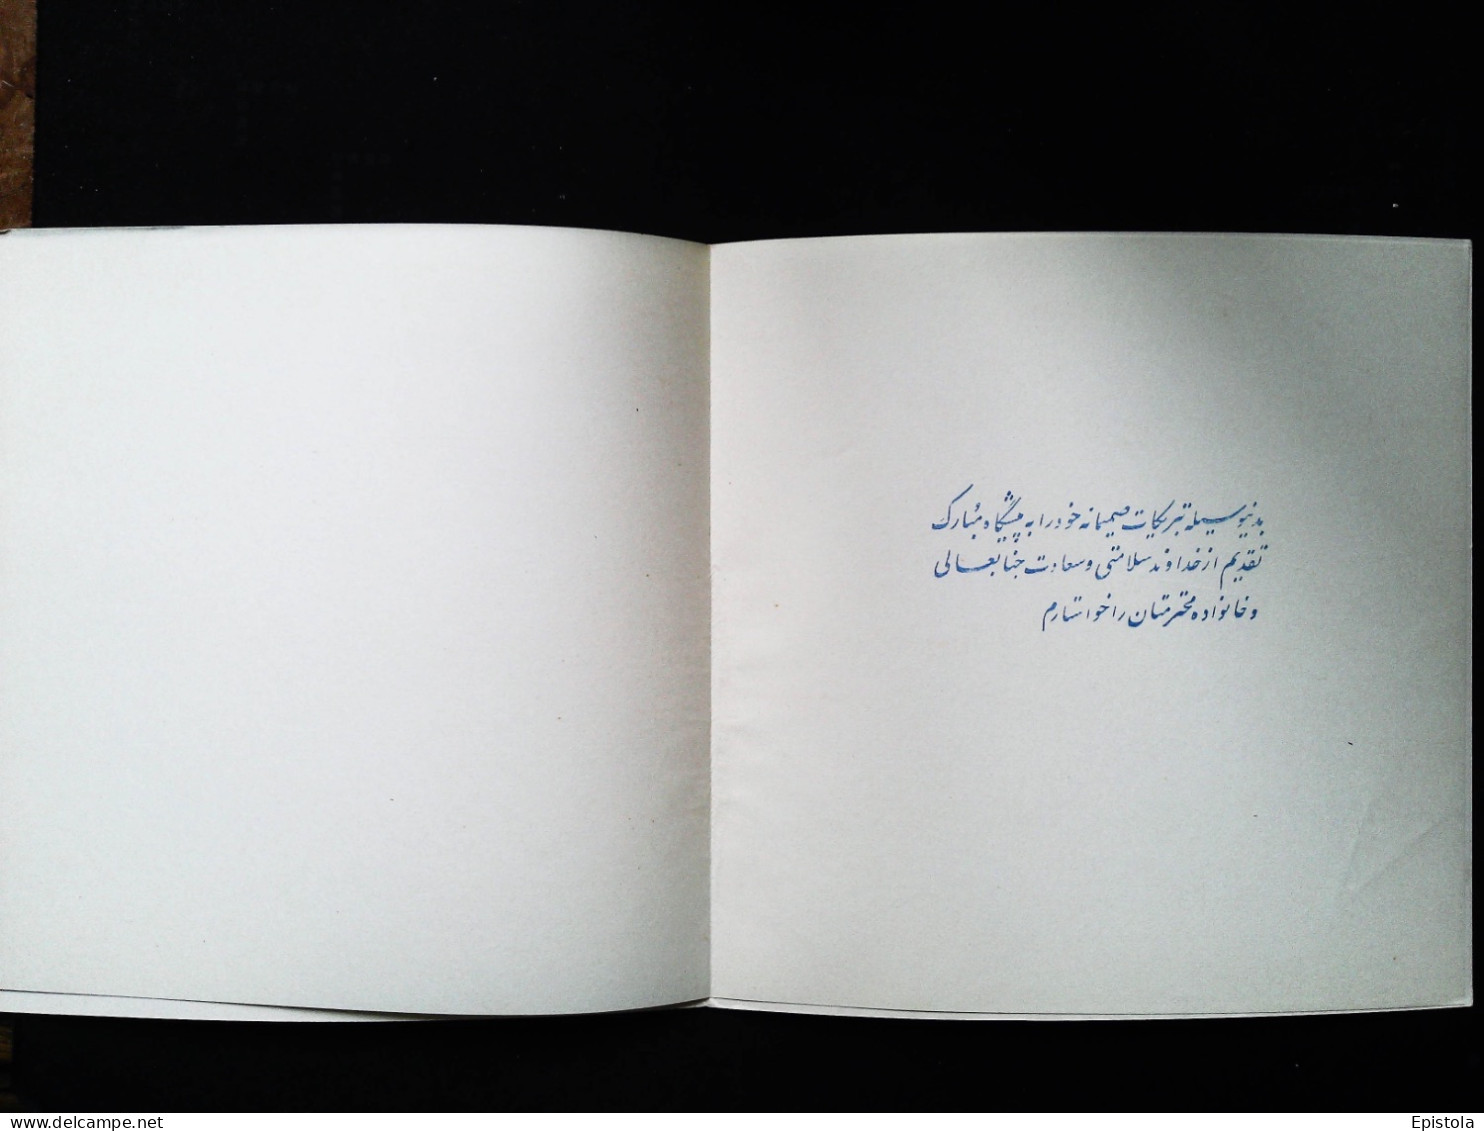 بدینوسیله تبریکات صمیمانه خود را به پیشگاه مبارک
تقدیم از خداوند سلامتی و سعادت جنابعالی
و خانواده محترمتان را خواستارم
www.delcampe.net
Epistola